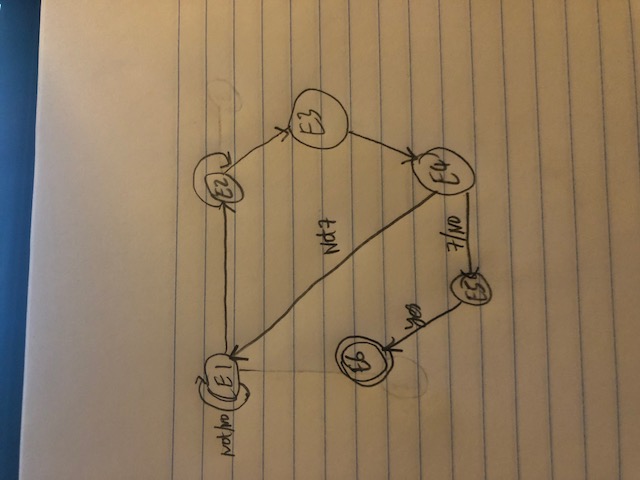 Not/no
E1
E2
E3
Not 7
E6
yes
E4
7/NO
E5